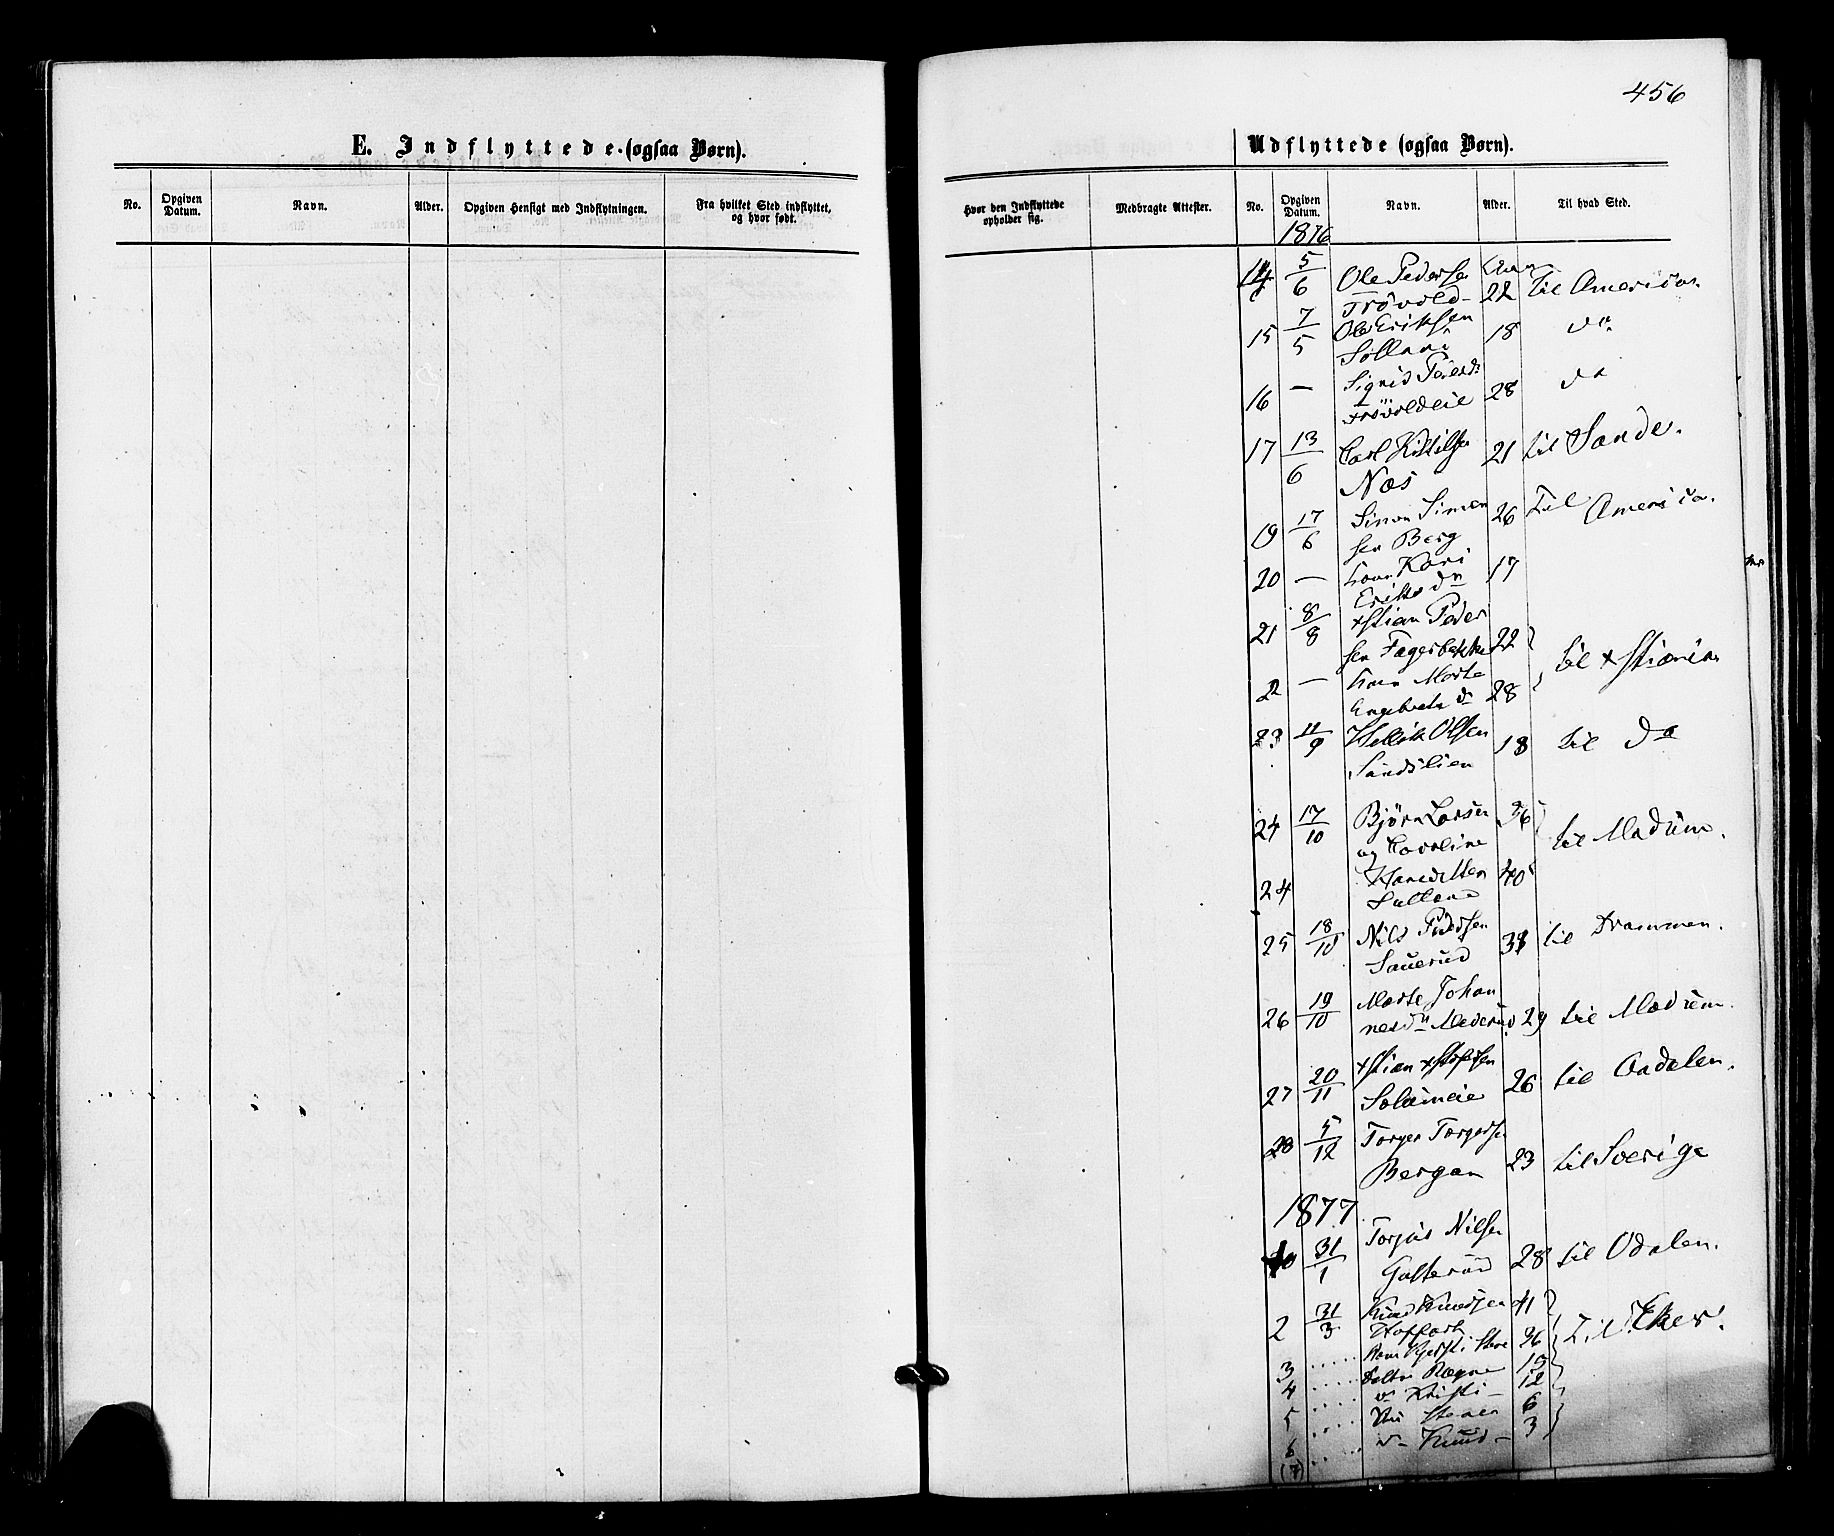 456
E. Indflyttede (ogsaa Børn).
No. Opgiven Datum. Navn. Alder. Opgiven Hensigt med Indflytningen. Fra hvilket Sted indflyttet, og hvor født.
Udflyttede (ogsaa Børn).
Hvor den Indflyttede opholder sig. Medbragte Attester. No. Opgiven Datum. Navn. Alder. Til hvad Sted.
1876
14 5/6 Ole Pedersen
Trövold 22 til America.
15 7/5 Ole Eriksen 18 do
16 — Sigrid Peders d:
Trövoldeie 28 do
17 13/6 Carl Kittilsen 21 til Sande.
Næs
19 17/6 Simon Simen 26 Til America.
sen Berg
20 — Kari 17
Eriks dn
21 8/8 Xstian Peder
sen Fagerbakke 22 til Xstiania
2 — Marte
Engebrets d 28
23 11/9 Olsen 18 til do
Sandslien
24 17/10 Björn Larsen 36 til Modum.
og Caroline
24 40
25 18/10 Nils 31 til Drammen.
26 19/10 Marte Johan
nesdn 29 til Modum.
27 20/11 Xstian Xstofsen
26 til Aadalen.
28 5/12 Torger Torgersen
Bergan 23 til Sverige
1877
31/1 Torjus Nilsen
Gulserud 28 til Odalen.
2 31/3 Knud Knudsen 41 til Eker.
3 36
4 15
5 Kristi 12
6 6
(7) Knud 3